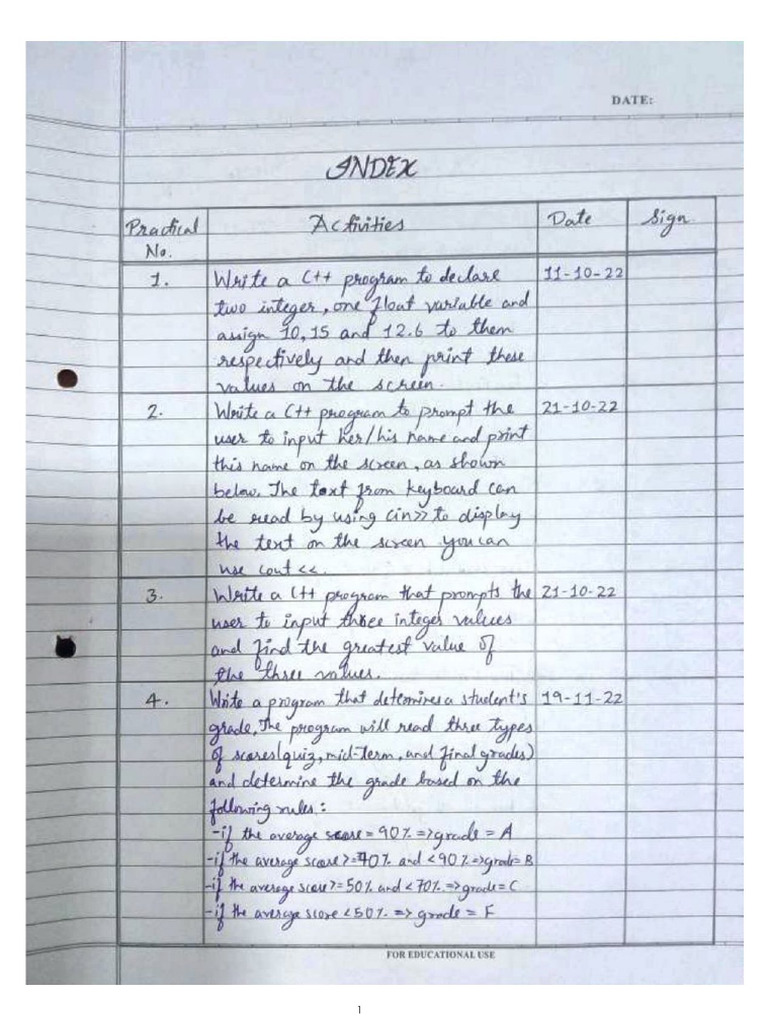 DATE:
INDEX
Practical No.
Activities
Date
Sign.
1.
Write a C++ program to declare
11-10-22
two integer, one float variable and
assign 10, 15 and 12.6 to them
respectively and then print these
values on the screen.
2.
Write a C++ program to prompt the
21-10-22
user to input her/his name and print
this name on the screen, as shown
below. The text from keyboard can
be read by using cin>> to display
the text on the screen you can
use cout <<.
3.
Write a C++ program that prompts the
21-10-22
user to input three integer values
and find the greatest value of
the three values.
4.
Write a program that detemines a student's
19-11-22
grade. The program will read three types
of scores(quiz, mid-term, and final grades)
and determine the grade based on the
following rules:
-if the average score = 90% => grade = A
-if the average score >= 70% and <90% => grade = B
-if the average score >= 50% and <70% => grade = C
-if the average score <50% => grade = F
FOR EDUCATIONAL USE
1